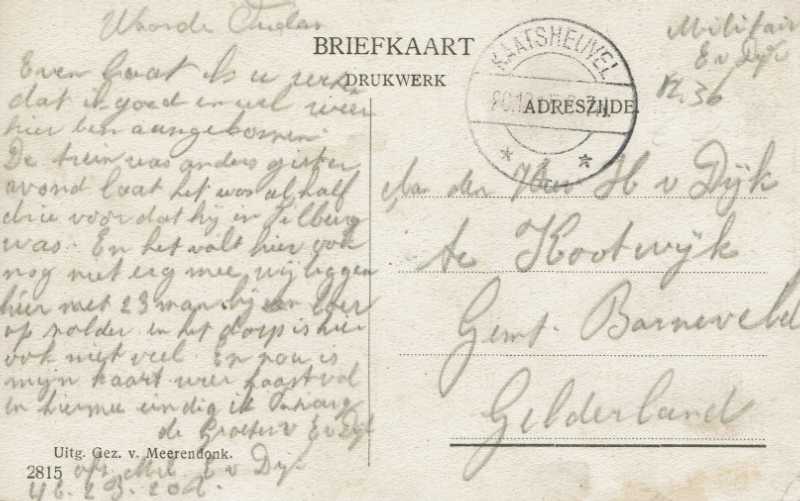 Waarde Ouders
Even laat ik u
dat ik goed en wel weer
hier ben aangekomen.
De trein was anders gister
avond laat het was al half
drie voor dat hij in Tilburg
was. En het valt hier ook
nog niet erg mee, wij liggen
hier met 23 man bij een boer
op zolder en het dorp is hier
ook niet veel. En nou is
mijn kaart weer haast vol
en hiermee eindig ik
de Groeten v E v Dijk
Mil. E v Dijk
BRIEFKAART
DRUKWERK
ADRESZIJDE.
KAATSHEUVEL
Militair
E v Dijk
Aan den Heer H v Dijk
te Kootwijk
Gemt. Barneveld
Gelderland
Uitg. Gez. v. Meerendonk.
2815